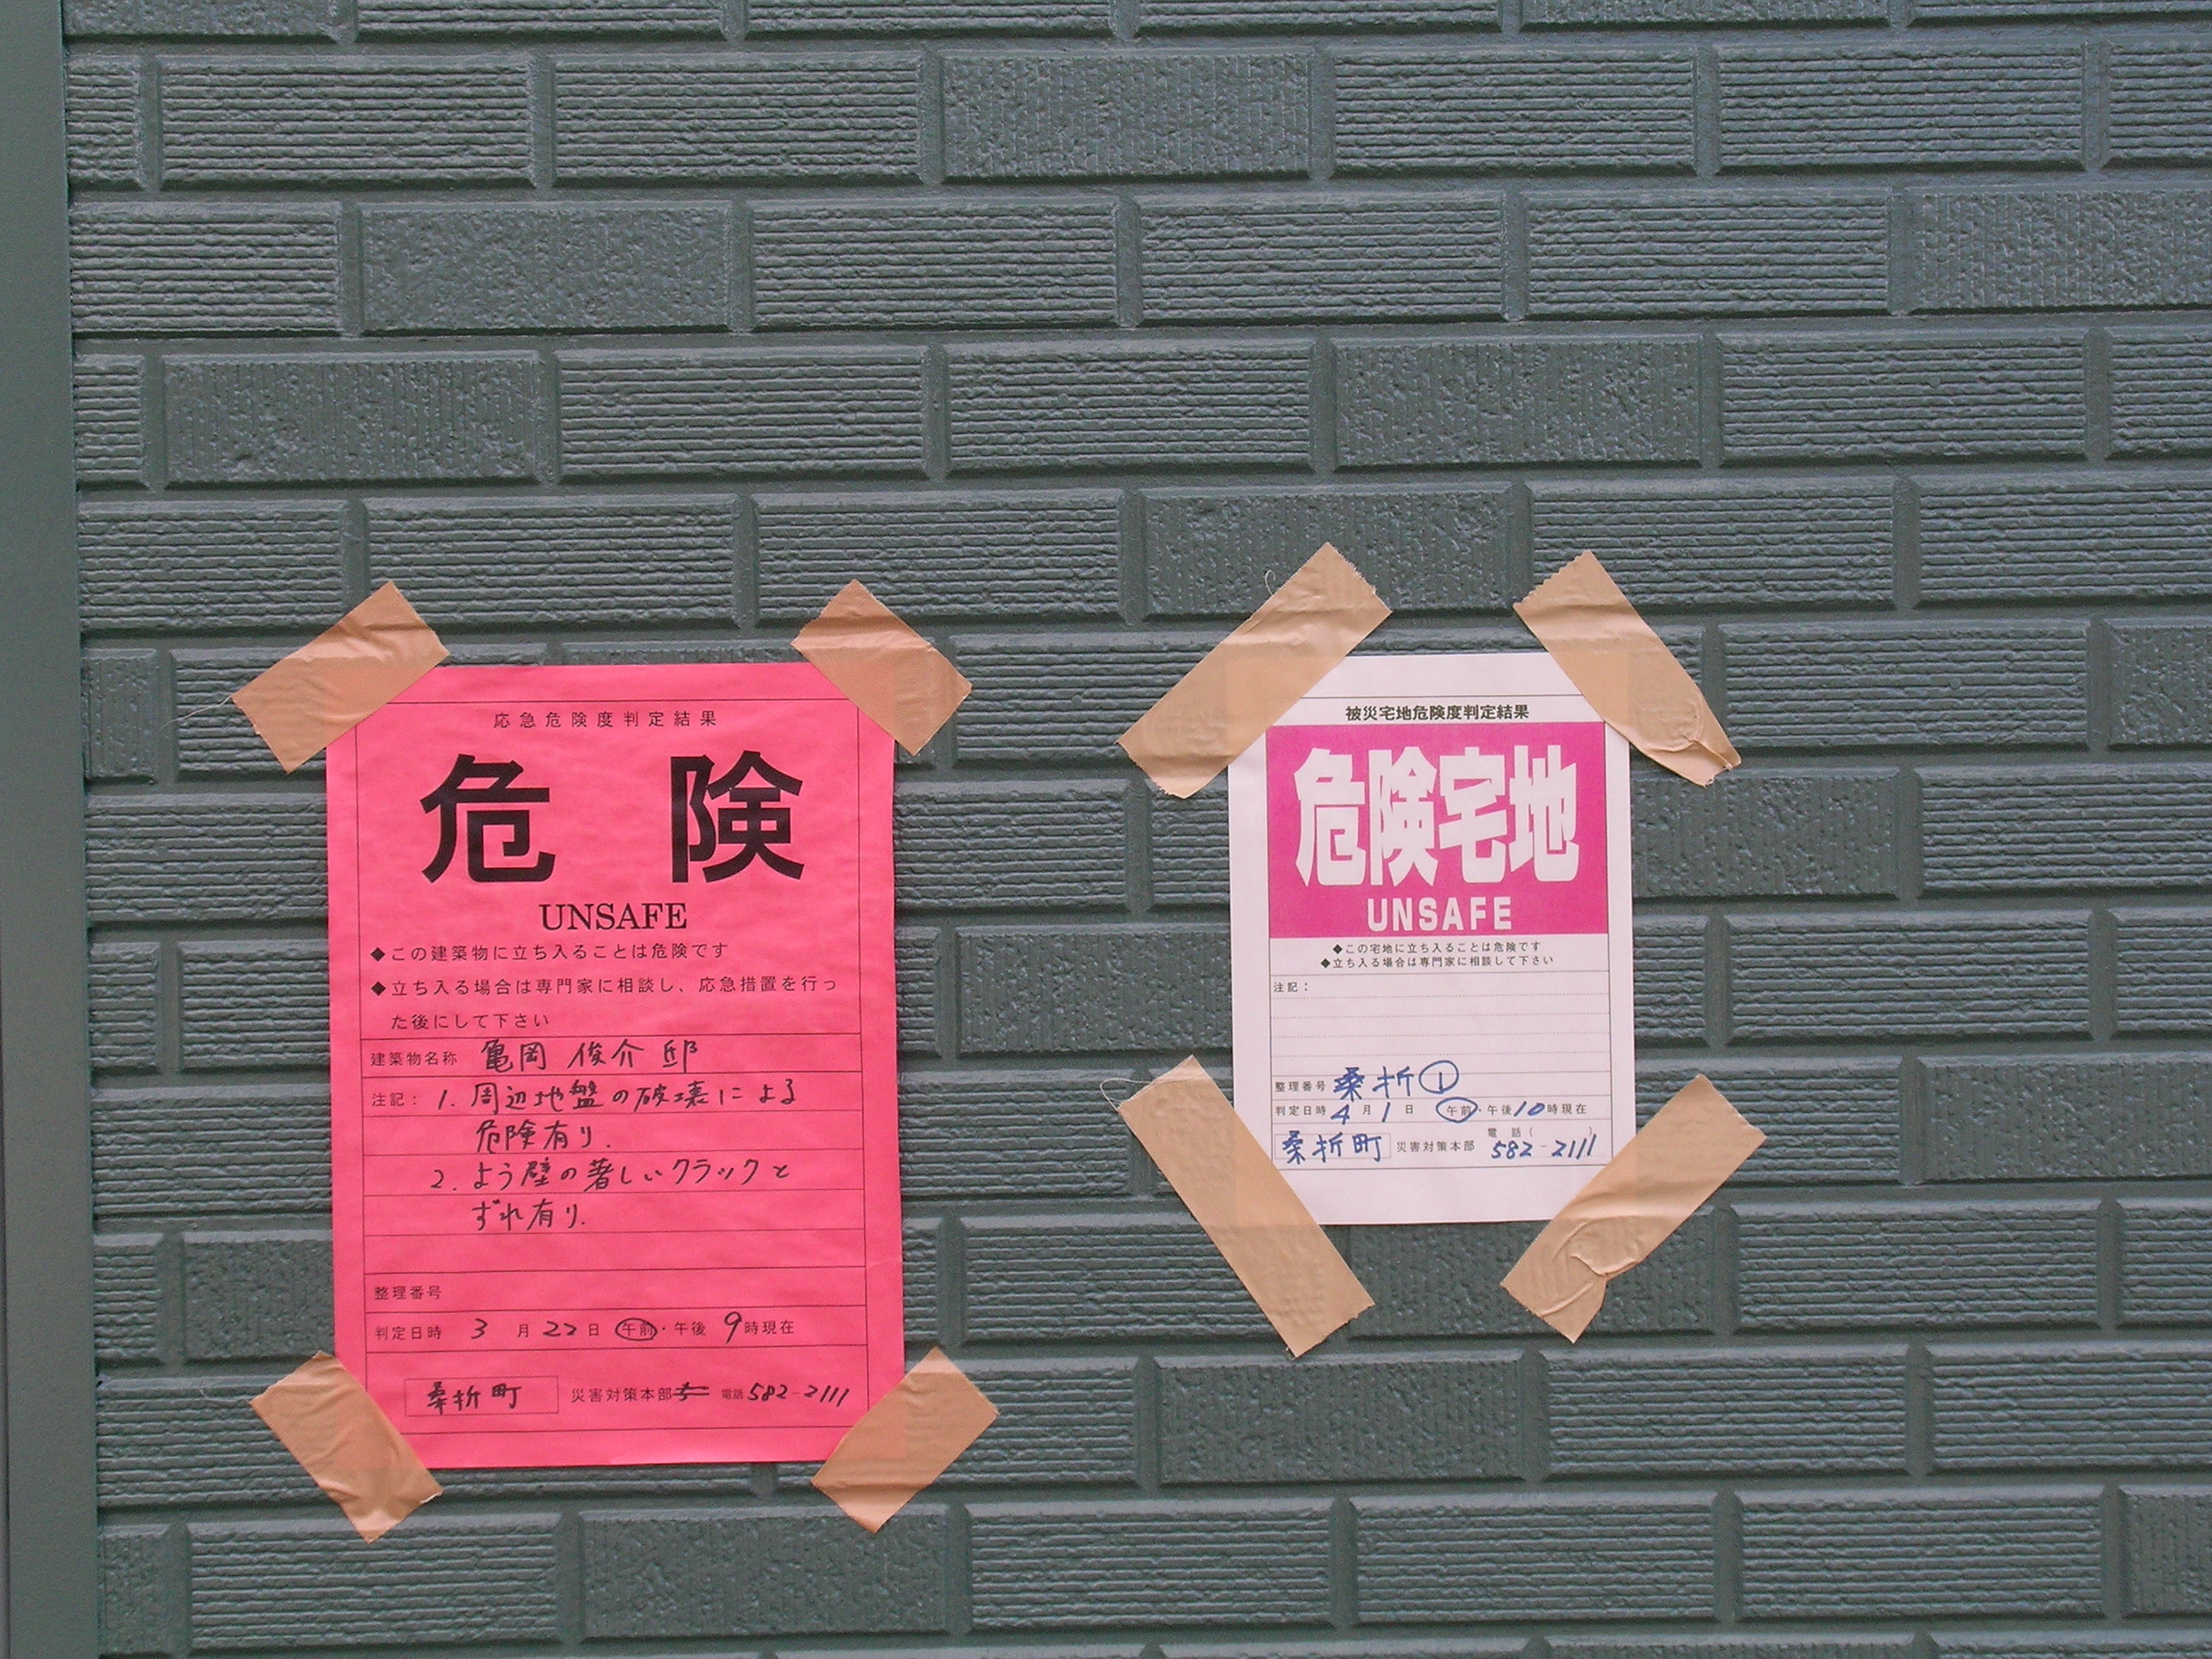 応急危険度判定結果
危険
UNSAFE
◆この建築物に立ち入ることは危険です
◆立ち入る場合は専門家に相談し、応急措置を行っ
た後にして下さい
建築物名称 亀岡 俊介 邸
注記： 1. 周辺地盤の破壊による
危険有り.
2. よう壁の著しいクラックと
ずれ有り.
整理番号
判定日時 3 月 22 日 午前・午後 9時現在
桑折町 災害対策本部 電話 582-2111
被災宅地危険度判定結果
危険宅地
UNSAFE
◆この宅地に立ち入ることは危険です
◆立ち入る場合は専門家に相談して下さい
注記：
整理番号 桑折①
判定日時 4 月 1 日 午前・午後 10 時現在
桑折町 災害対策本部 電話( ) 582-2111